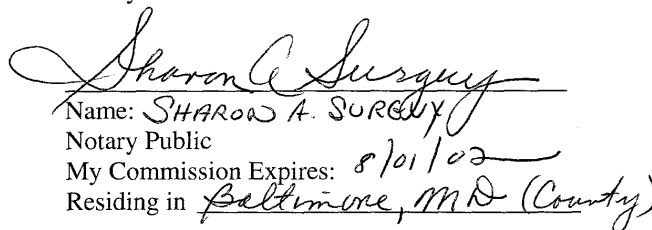 Sharon A Surguy
Name: SHARON A. SURGUY
Notary Public
My Commission Expires: 8/01/02
Residing in Baltimore, MD (County)